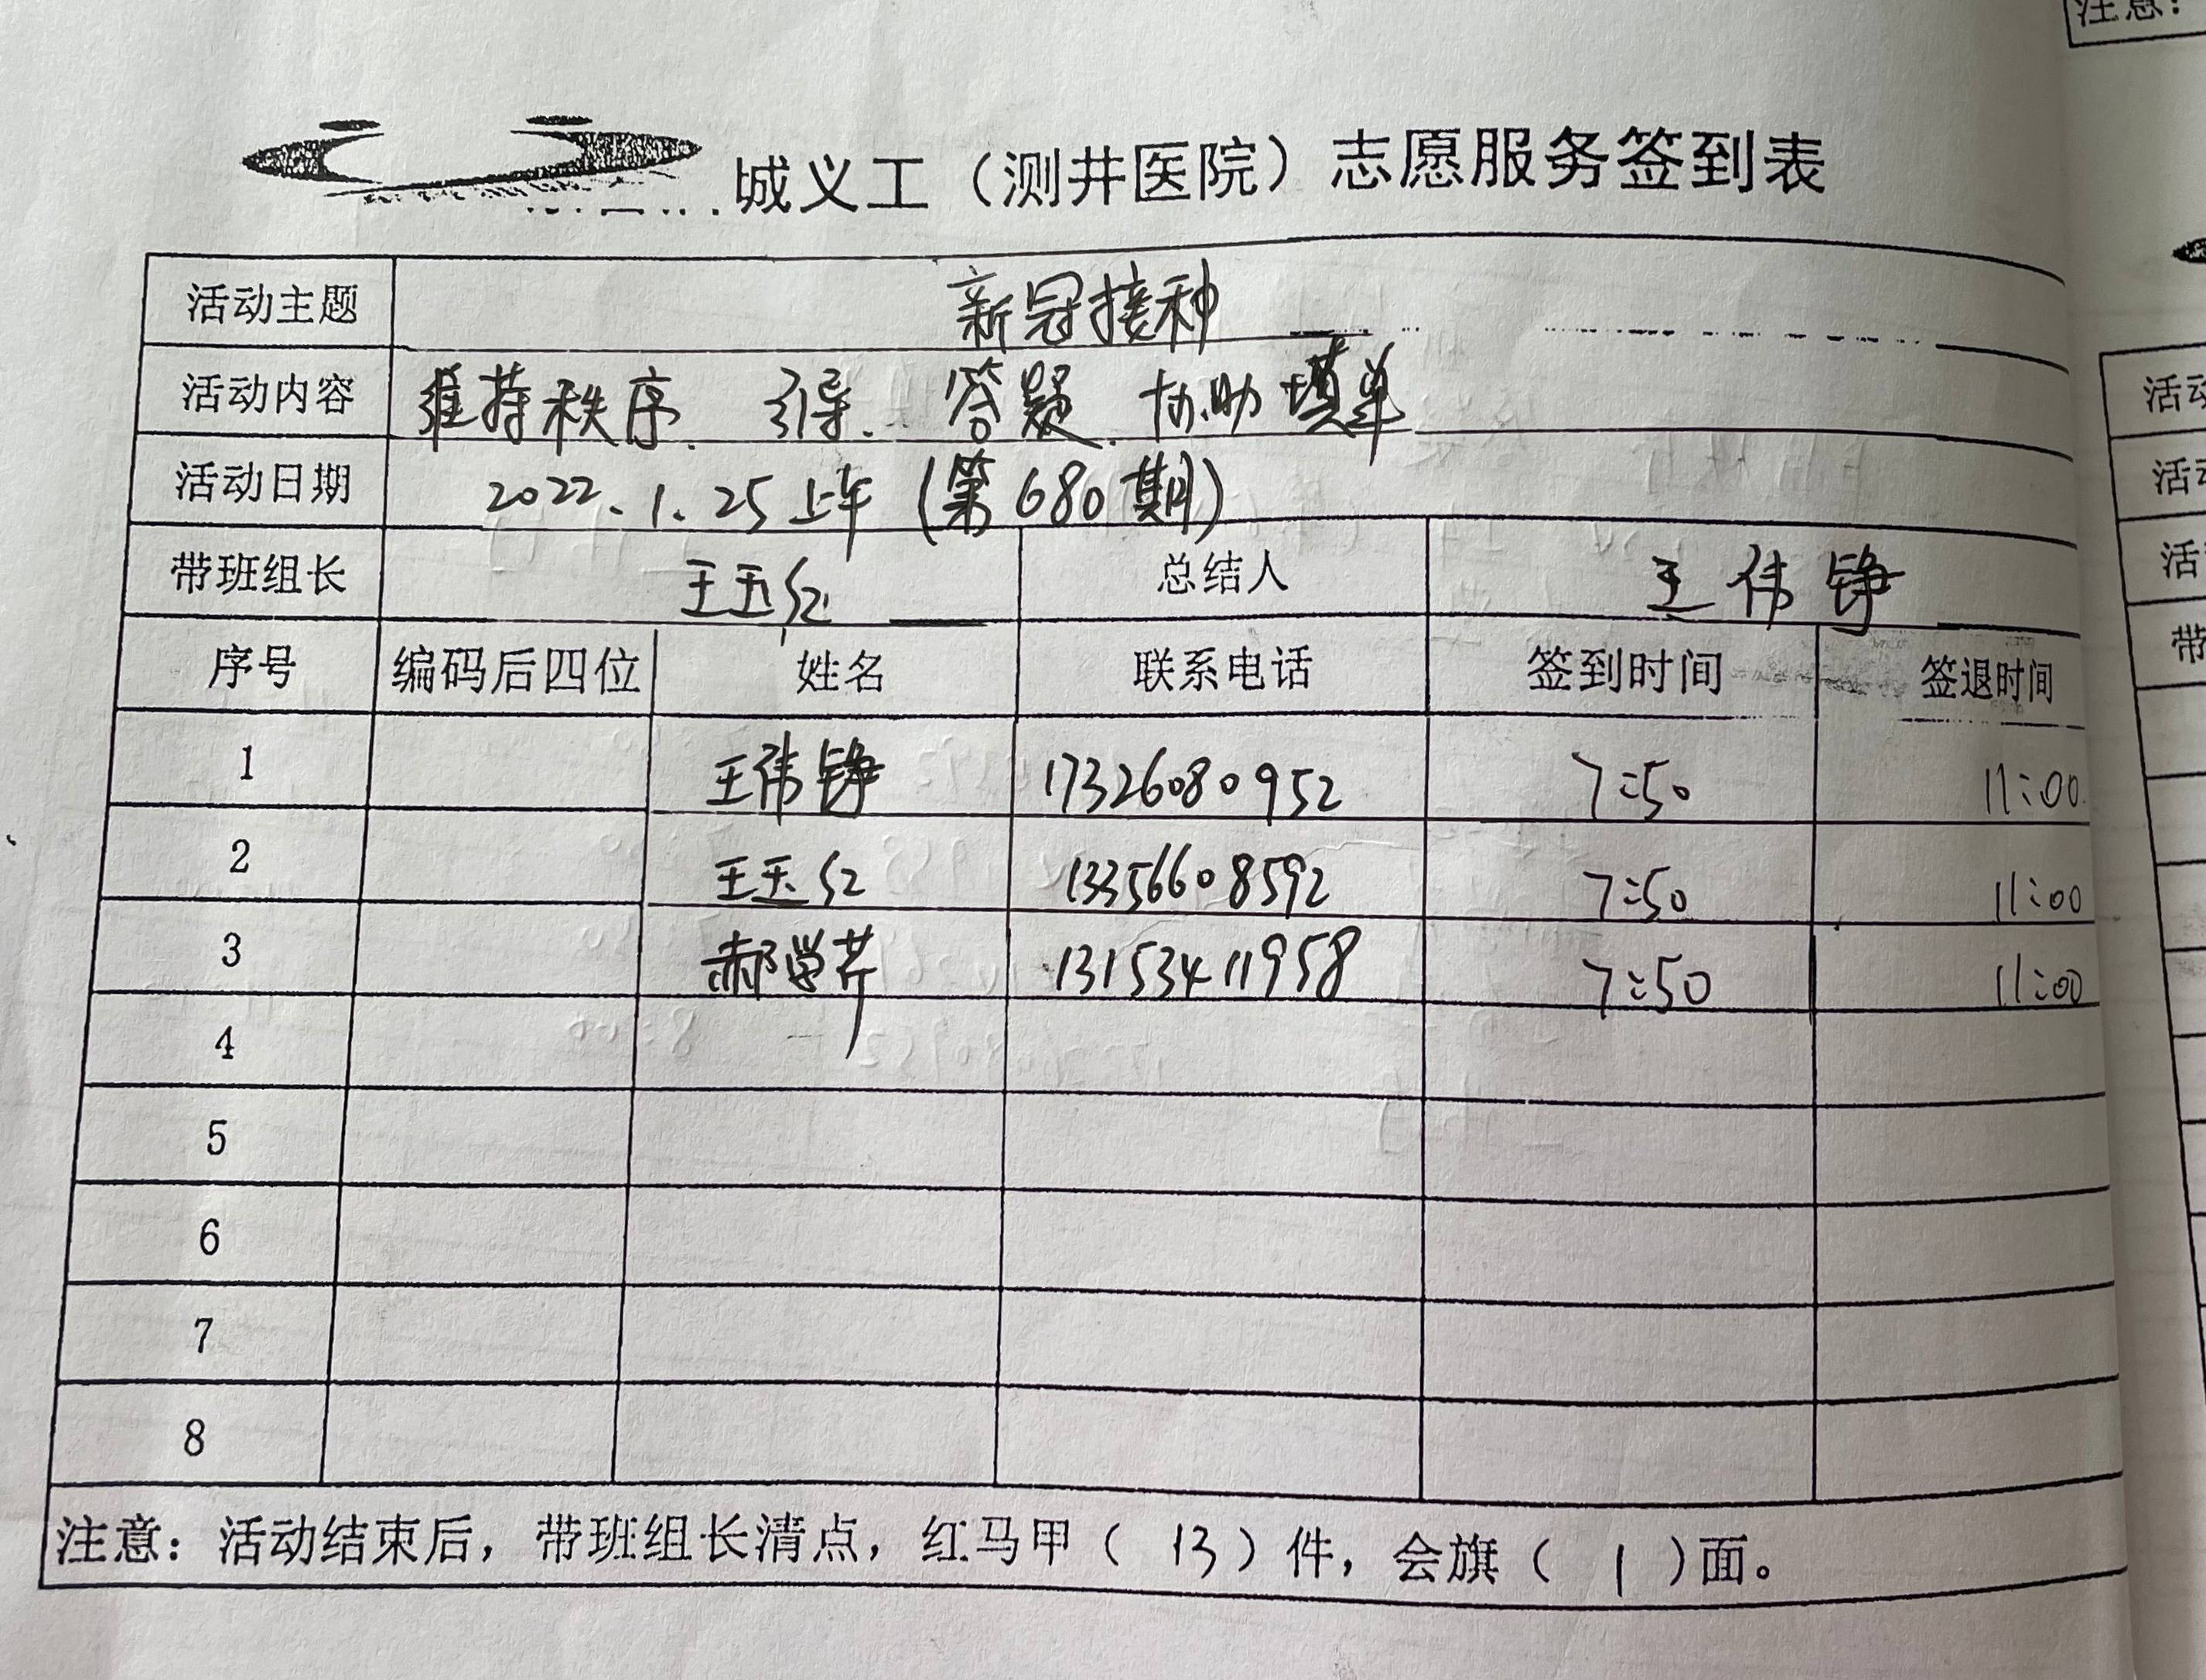 城义工（测井医院）志愿服务签到表
活动主题 新冠接种
活动内容 维持秩序、引导、答疑、协助填单
活动日期 2022.1.25上午（第680期）
带班组长 王玉红 总结人 王伟铮
序号 编码后四位 姓名 联系电话 签到时间 签退时间
1 王伟铮 17326080952 7:50 11:00
2 王玉红 13356608592 7:50 11:00
3 郝学芹 13153411958 7:50 11:00
4
5
6
7
8
注意：活动结束后，带班组长清点，红马甲（ 13 ）件，会旗（ 1 ）面。
注意：
活动
活动
活
带